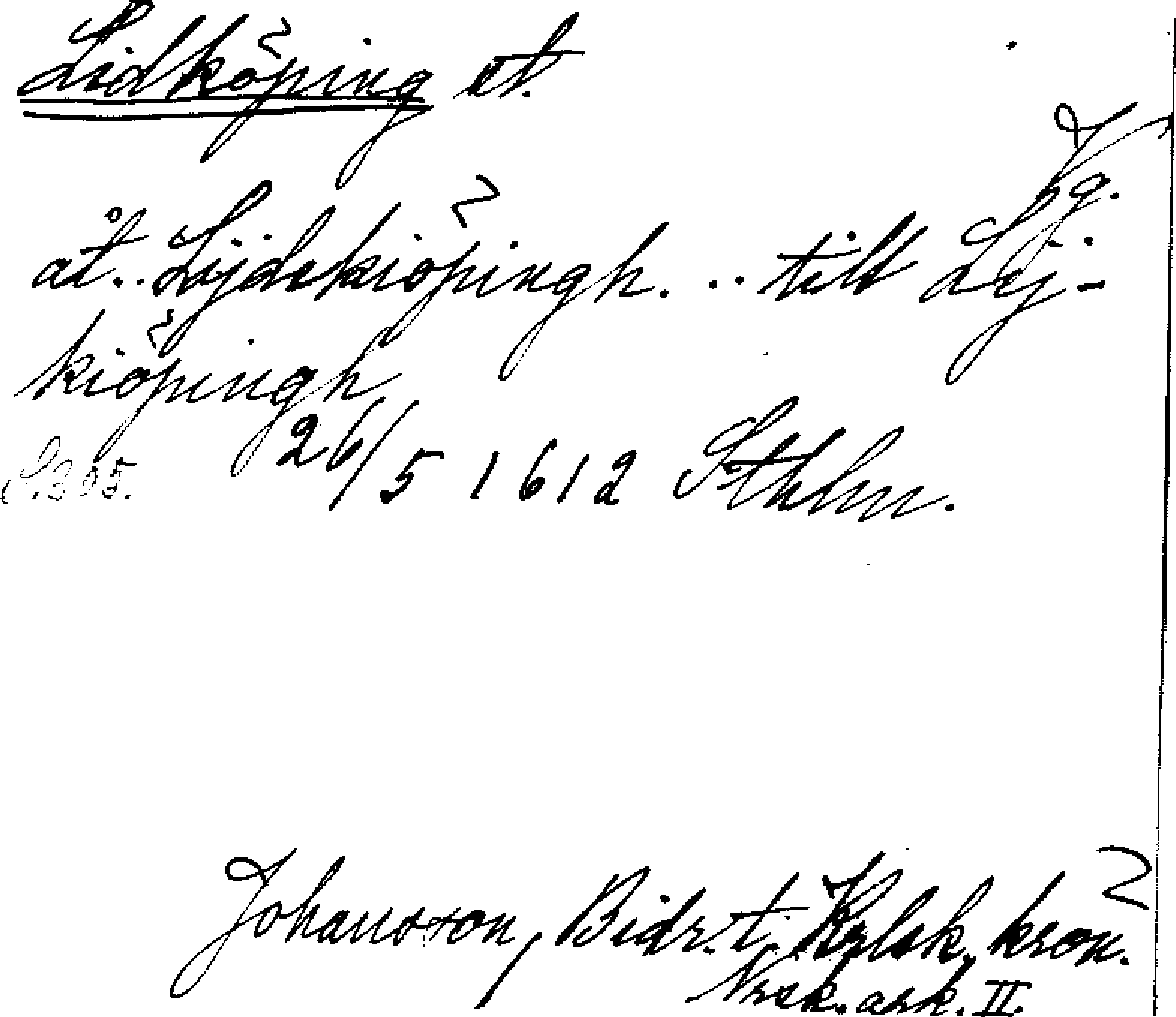 Lidköping st.
Vg.
åt.. Lijdekiöpingh. .. till Lij-
kiöpingh
S. 305. 26/5 1612 Sthlm.
Johansson, Bidr. t. Krlsk. kron.
Nrsk. ark. II.